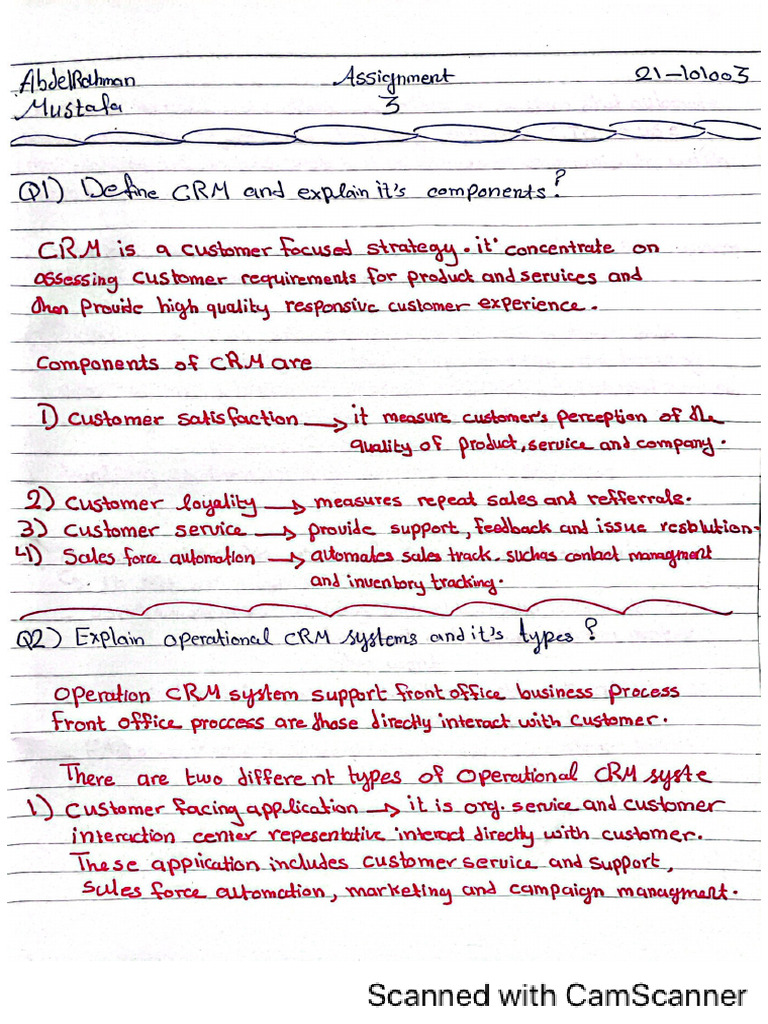 AbdelRahman Assignment 21-101003
Mustafa 3
Q1) Define CRM and explain it's components?
CRM is a customer focused strategy. it' concentrate on
assessing customer requirements for product and services and
then Provide high quality responsive customer experience.
Components of CRM are
1) Customer satisfaction → it measure customer's perception of the
quality of product, service and company.
2) Customer loyality → measures repeat sales and refferrals.
3) Customer service → provide support, feedback and issue resolution.
4) Sales force automation → automates sales track. such as contact managment
and inventory tracking.
Q2) Explain operational CRM systems and it's types?
Operation CRM system support front office business process
Front office proccess are those directly interact with customer.
There are two different types of operational CRM syste
1) Customer facing application → it is org. service and customer
interaction center repesentative interact directly with customer.
These application includes customer service and support,
sales force automation, marketing and campaign managment.
Scanned with CamScanner